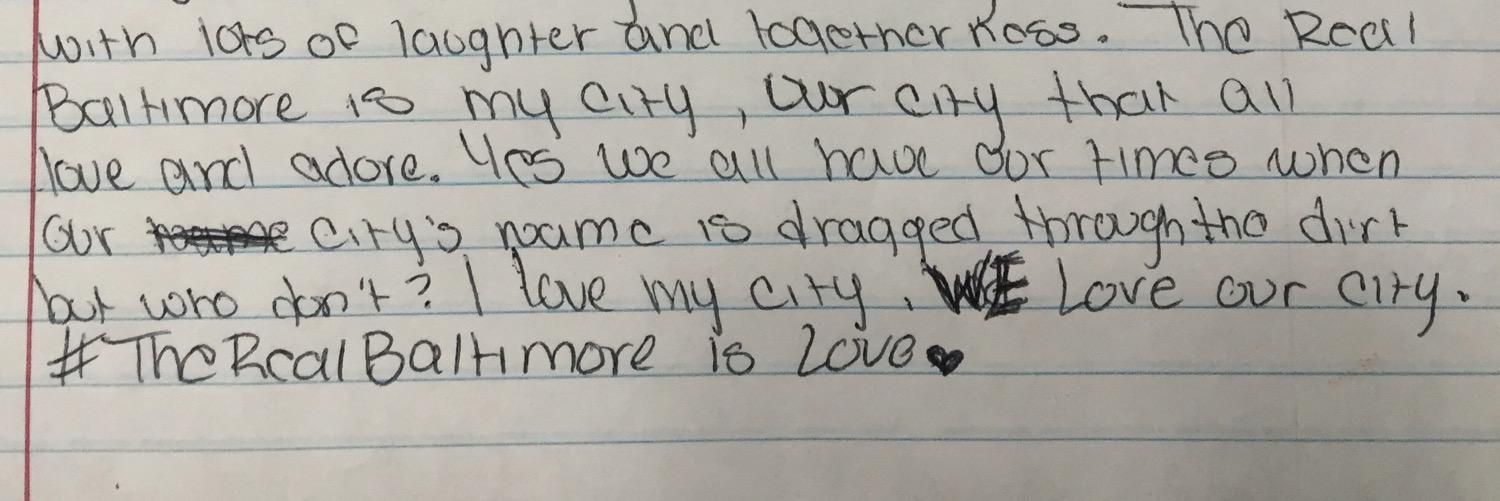 with lots of laughter and togetherness. The Real
Baltimore is my city, Our city that all
love and adore. Yes we all have our times when
our city's name is dragged through the dirt
but who don't? I love my city. WE Love our city.
#TheRealBaltimore is Love♥